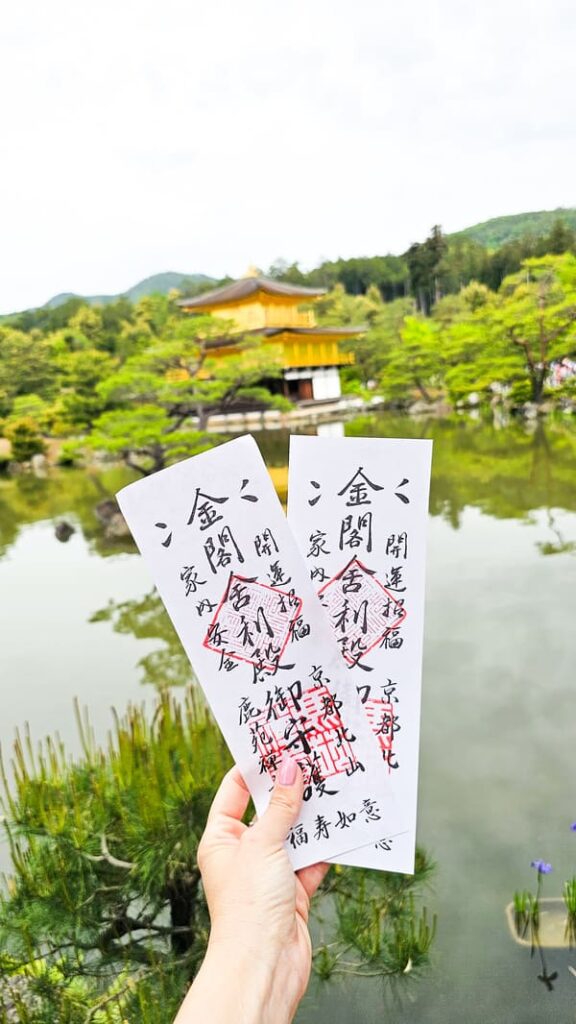 開運招福
京都北山
金閣舍利殿御守護
家内安全
鹿苑禅
福寿如意
開運招福
京都北
金閣舍利殿
家内
意